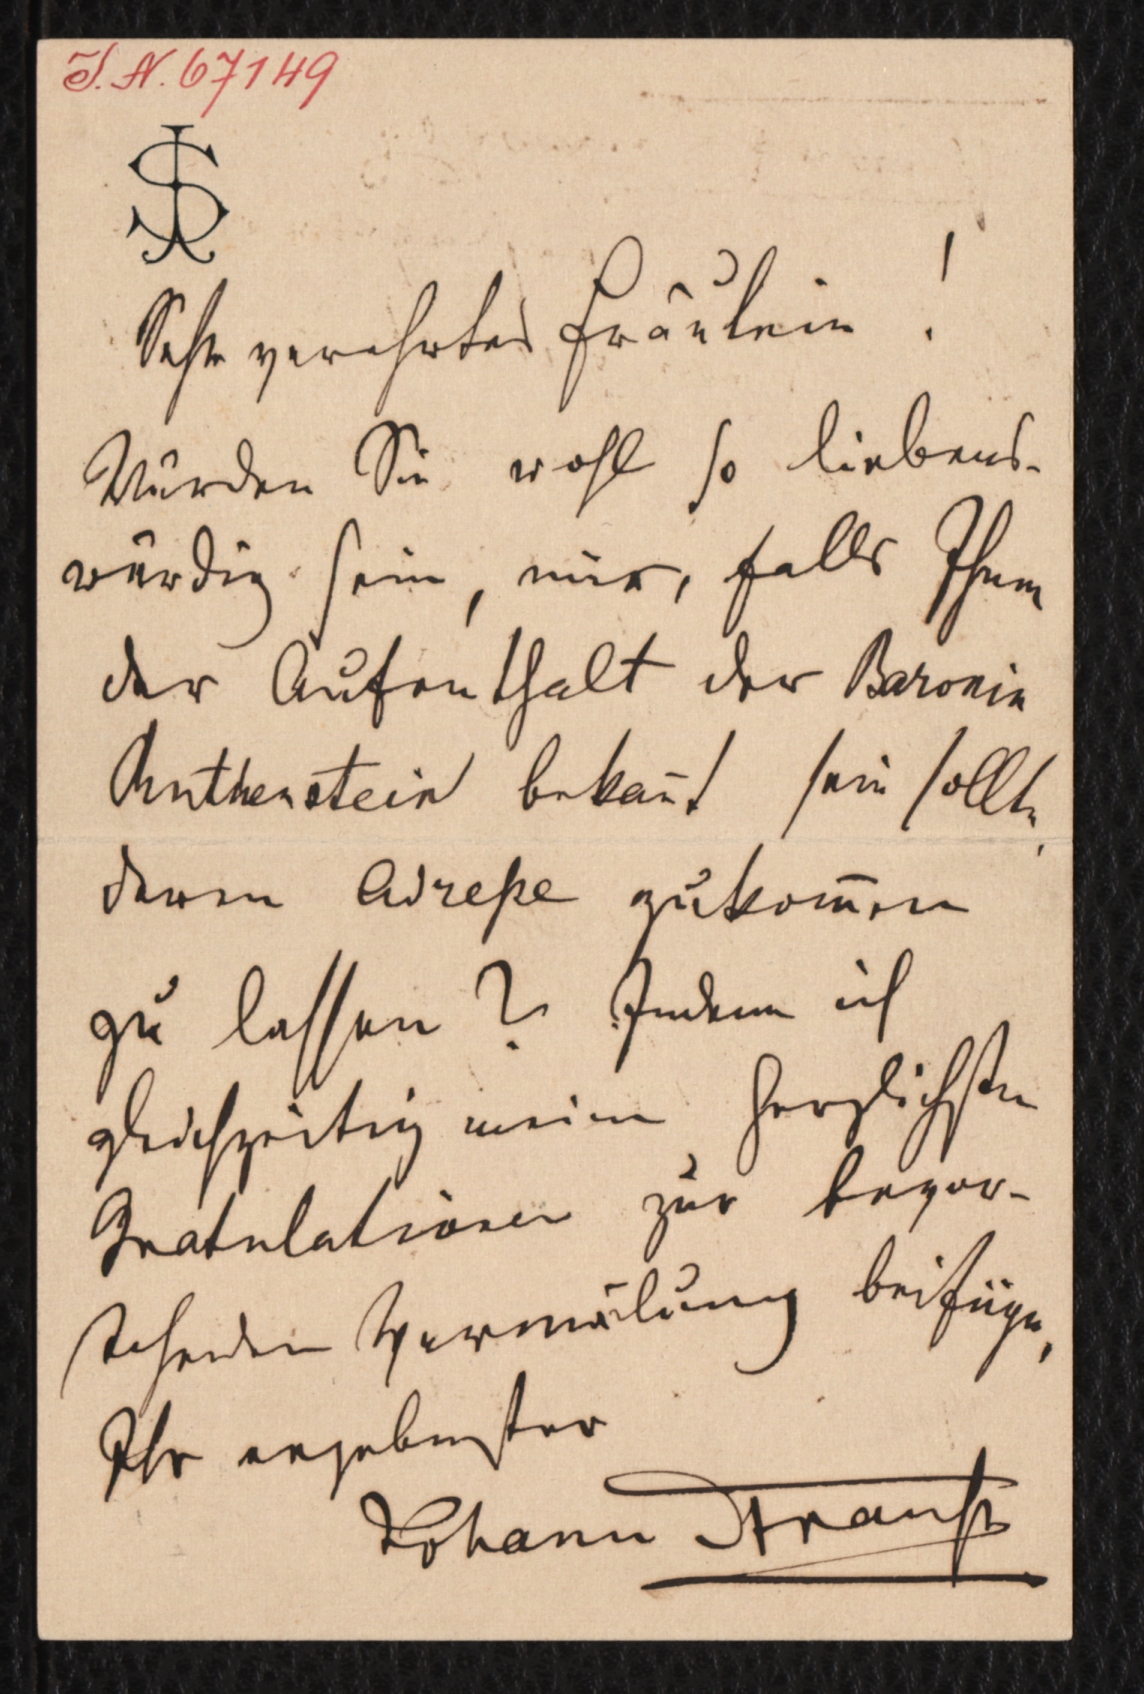 I. N. 67149
JS
Sehr verehrtes Fräulein!
Würden Sie wohl so liebens-
würdig sein, mir, falls Ihnen
der Aufenthalt der Baronin
bekan̄t sein sollte,
deren Adreße zukom̄en
zu lassen? Indem ich
gleichzeitig meine herzlichsten
Gratulationen zur bevor-
stehenden Vermälung beifüge,
Ihr ergebenster
Johann Strauß